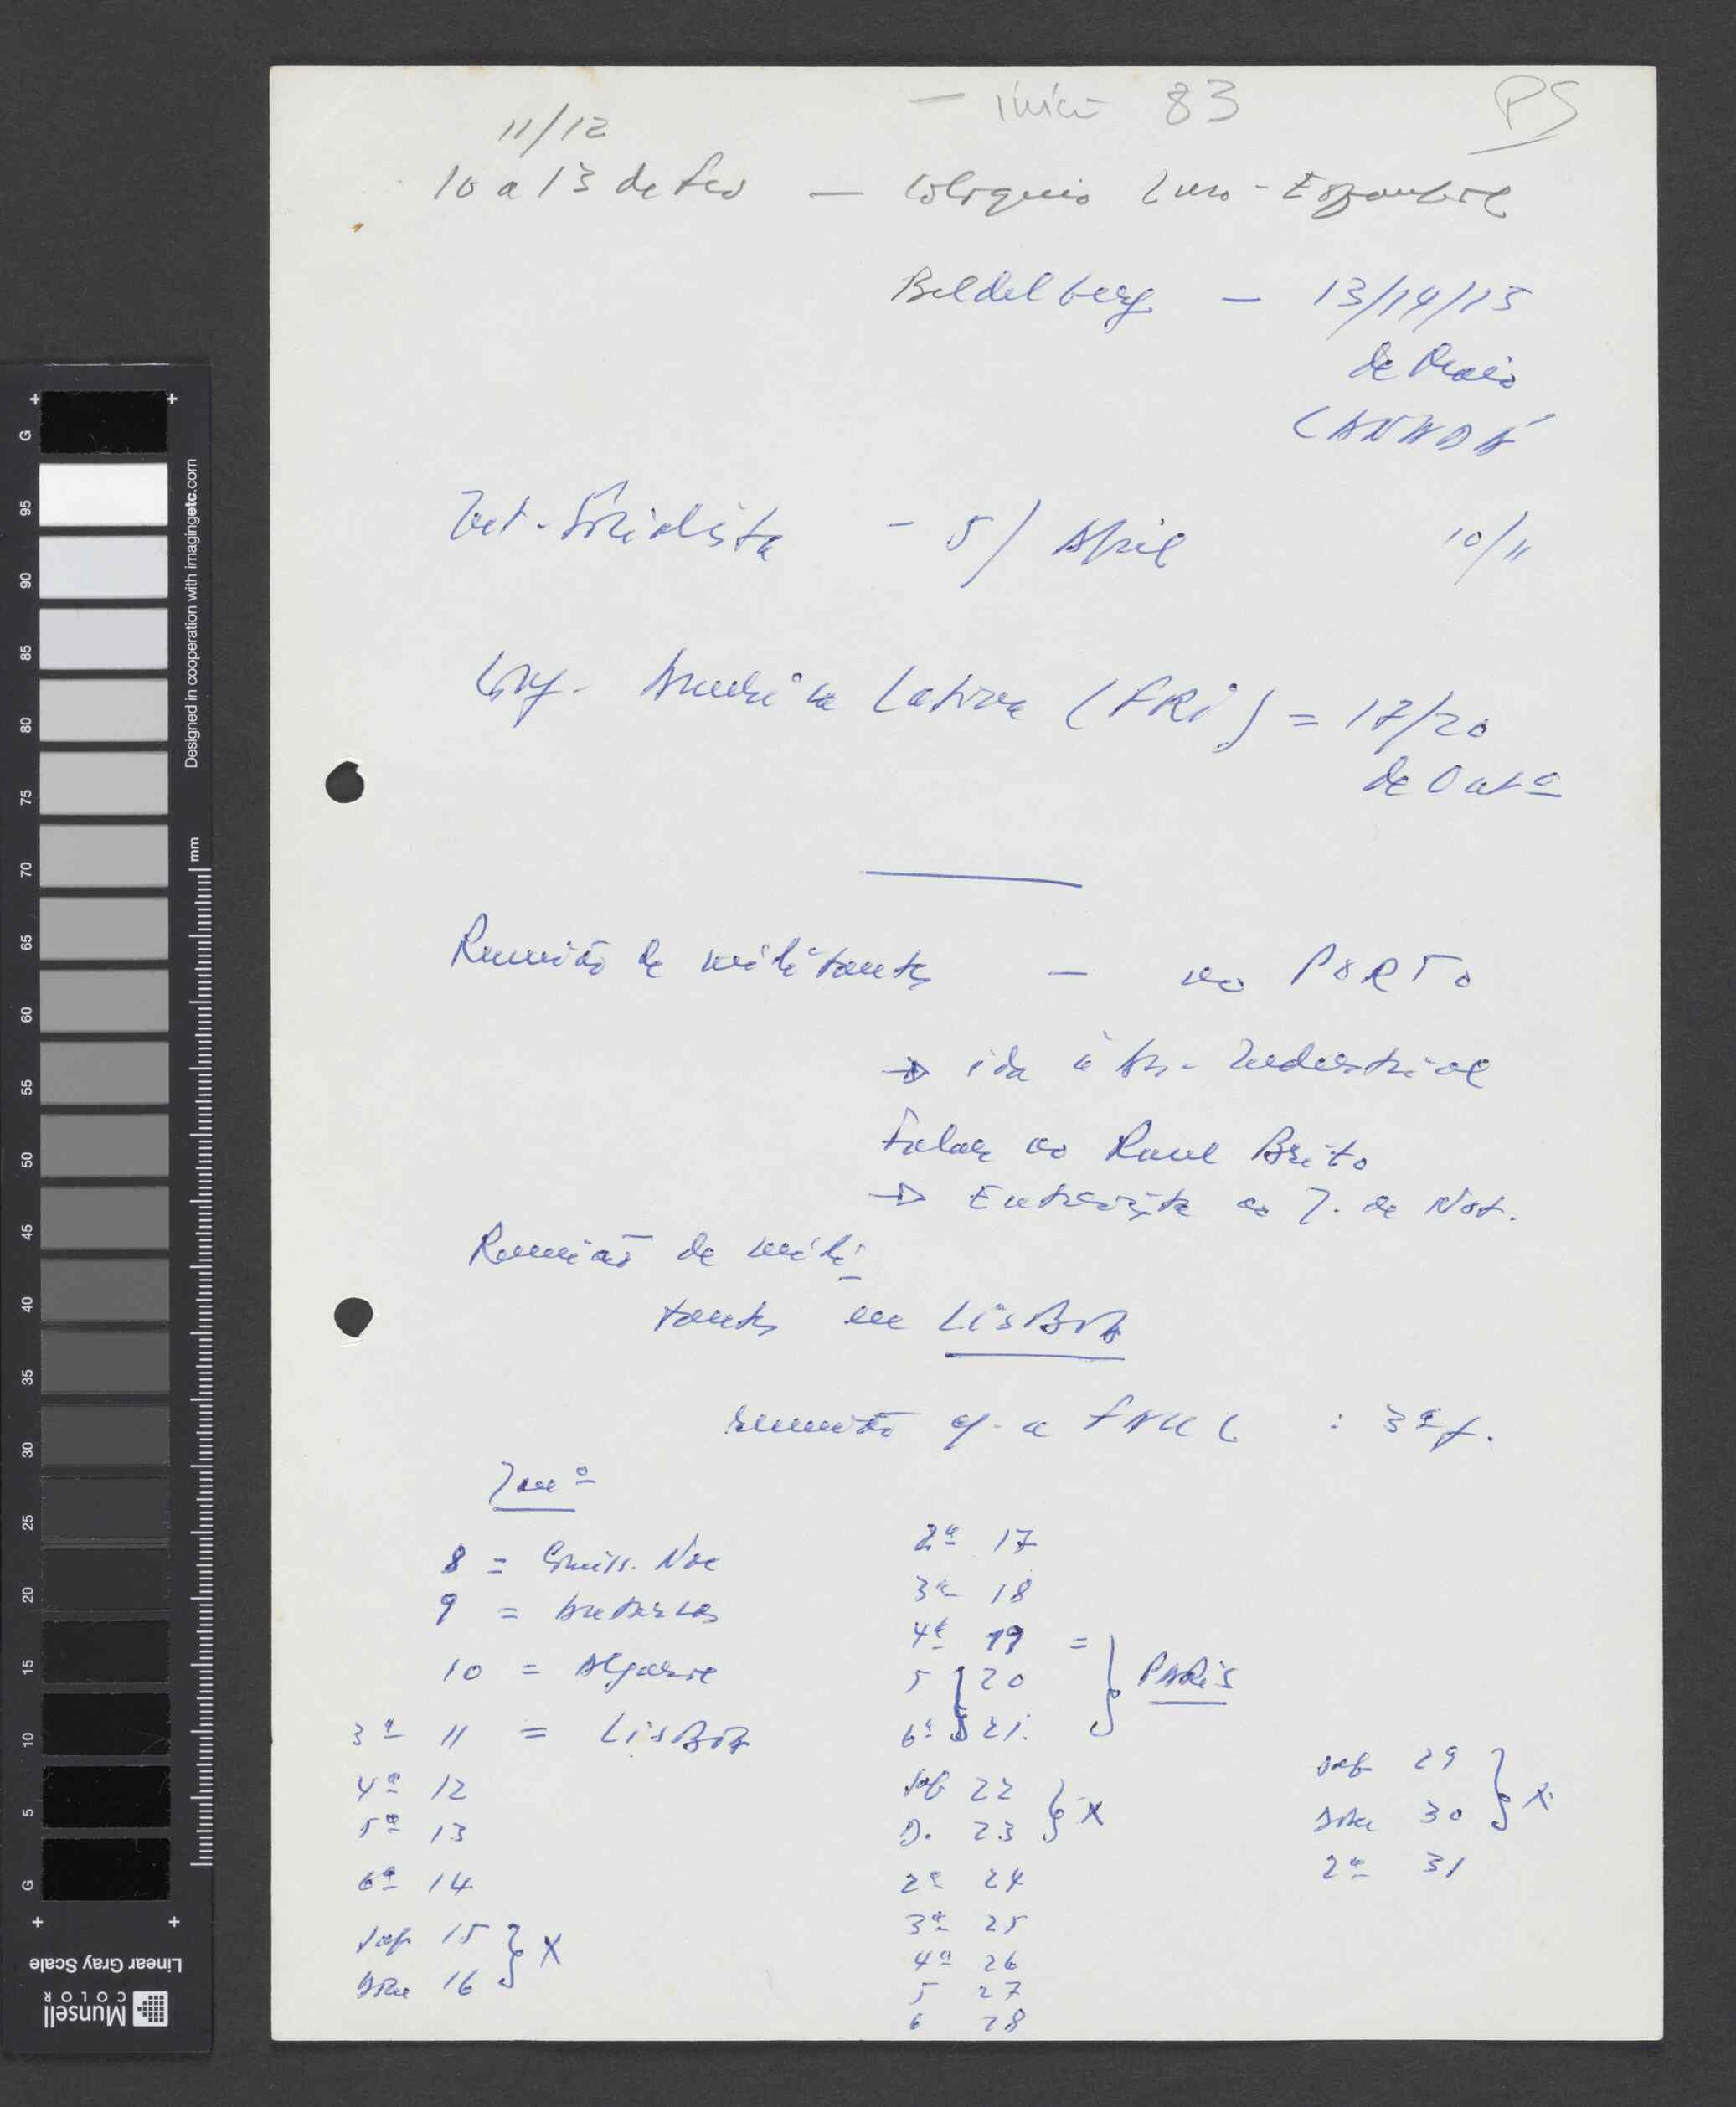 - início 83
PS
11/12
10 a 13 de Fev — Colóquio Luso-Espanhol
Beldelberg — 13/14/15
de Maio
CANADÁ
Int. Socialista - 5/ Abril 10/11
Conf. América Latina (FRI) = 17/20
de Outº
Reunião de militantes — no PORTO
→ ida à As. Industrial
Falar ao Raul Brito
→ Entrevista ao J. de Not.
Reunião de mili-
tantes em LISBOA
reunião c/ a FAUL : 3ª f.
Janº
8 = Comiss. Nac
9 =
10 = Algarve
3ª 11 = LISBOA
4ª 12
5ª 13
6ª 14
Sab 15 } X
Dom 16
2ª 17
3ª 18
4ª 19 =
5 20 } PARIS
6ª 21
Sab 22 } X
D. 23
2ª 24
3ª 25
4ª 26
5 27
6 28
Sab 29 } X
Dom 30
2ª 31
G
95
90
85
80
75
70
65
60
55
50
45
40
35
30
25
20
15
10
5
G
mm
Designed in cooperation with imagingetc.com
Linear Gray Scale
Munsell
COLOR